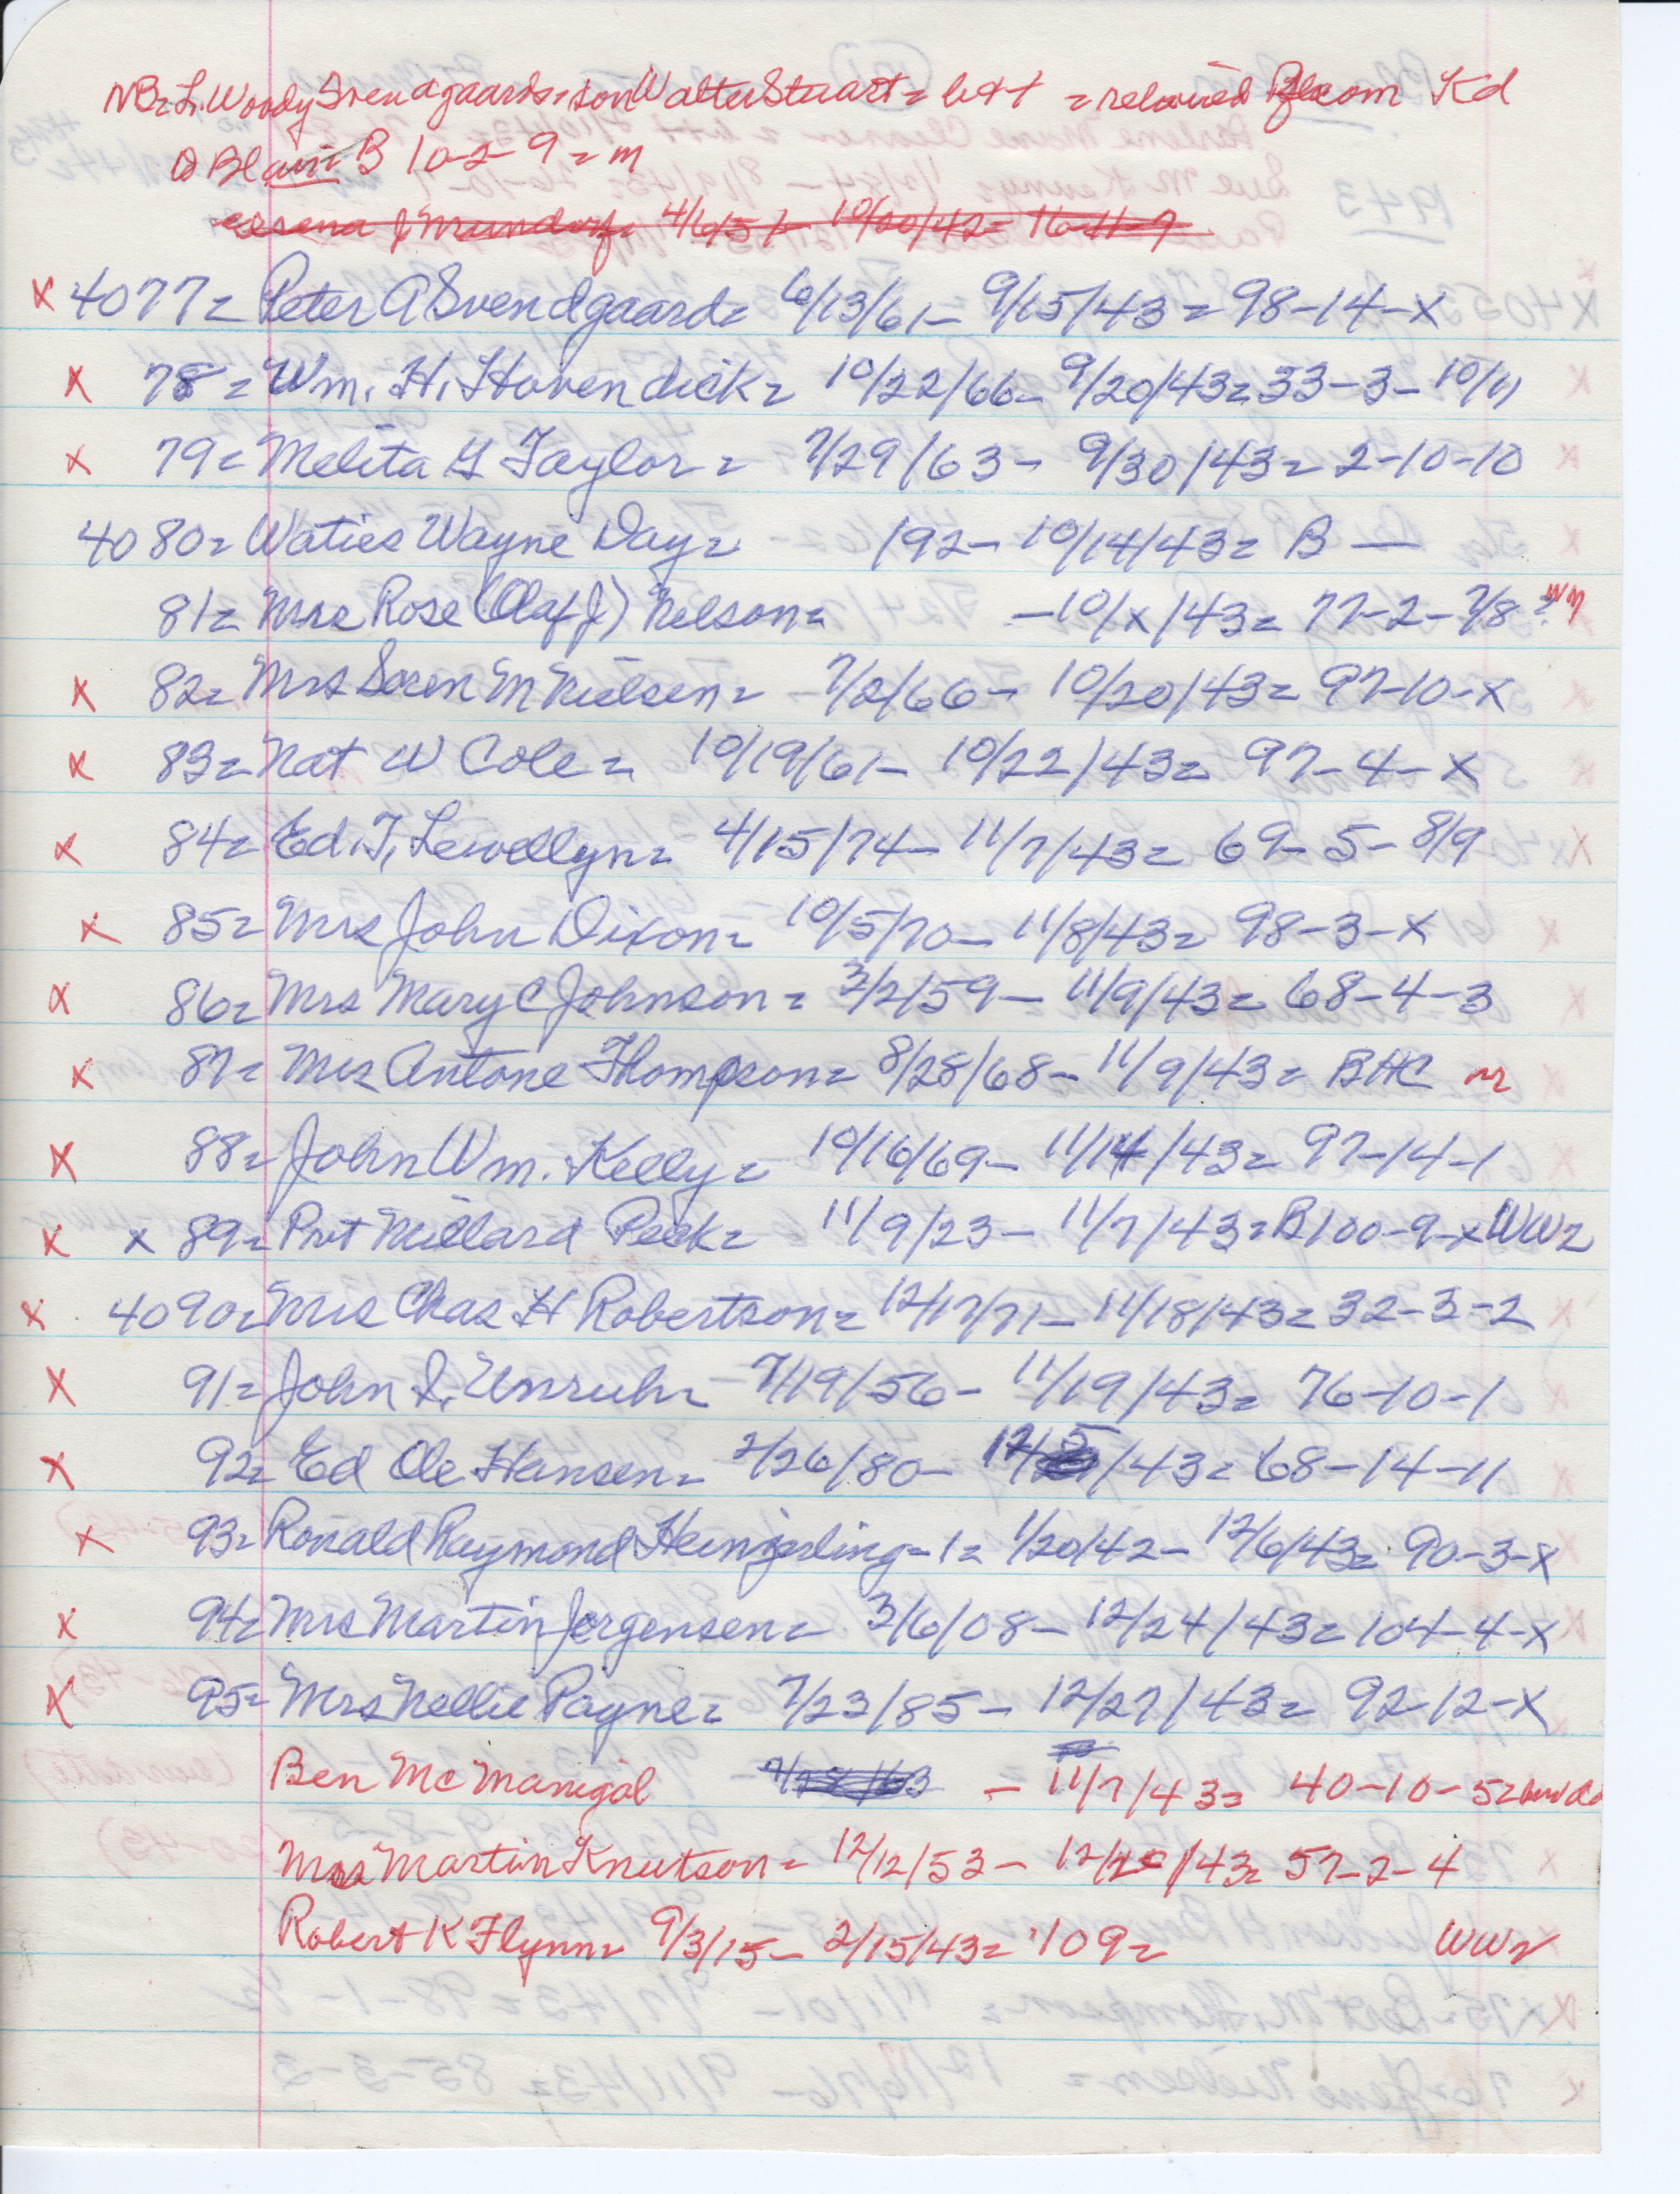 NB= L. Woody Svendgaards = son Walter Stuart = b+t = relocated from Kd
@ Blair B 10-2-9 = m
J Mundorf = 4/6/5 - 10/20/42 = 16-11-9
x 4077 = Peter A Svendgaard = 6/13/61 - 9/15/43 = 98-14-x
x 78 = Wm. H. Hovendick = 10/22/66 - 9/20/43 = 33-3-10/11
x 79 = Melita G Taylor = 7/29/63 - 9/30/43 = 2-10-10
4080 = Waties Wayne Day = 192 - 10/14/43 = B —
81 = Mrs Rose (Olaf J) Nelson = - 10/x/43 = 77-2-7/8 ?
x 82 = Mrs Soren M Nielsen = 7/2/66 - 10/20/43 = 97-10-x
x 83 = Nat W Cole = 10/19/61 - 10/22/43 = 97-4-x
x 84 = Ed. T. Lewellyn = 4/15/74 - 11/7/43 = 69-5-8/9
x 85 = Mrs John Dixon = 10/5/70 - 11/8/43 = 98-3-x
x 86 = Mrs Mary C Johnson = 3/2/59 - 11/9/43 = 68-4-3
x 87 = Mrs Antone Thompson = 8/28/68 - 11/9/43 = BHC m
x 88 = John Wm. Kelly = 10/16/69 - 11/14/43 = 97-14-1
x x 89 = Pvt Millard Peck = 11/9/23 - 11/7/43 = B100-9-x WW2
x 4090 = Mrs Chas H Robertson = 12/17/71 - 11/18/43 = 32-3-2
x 91 = John I. Unruh = 7/19/56 - 11/19/43 = 76-10-1
x 92 = Ed Ole Hansen = 2/26/80 - 12/5/43 = 68-14-11
x 93 = Ronald Raymond -1 = 1/20/42 - 12/6/43 = 90-3-x
x 94 = Mrs Martin Jorgensen = 3/6/08 - 12/24/43 = 104-4-x
x 95 = Mrs Nellie Payne = 7/23/85 - 12/27/43 = 92-12-x
Ben Mc Manigal - 11/7/43 = 40-10-5 =
Mrs Martin Knutson = 12/12/53 - /43 = 57-2-4
Robert K Flynn = 9/3/15 - 2/15/43 = 109 = WW2